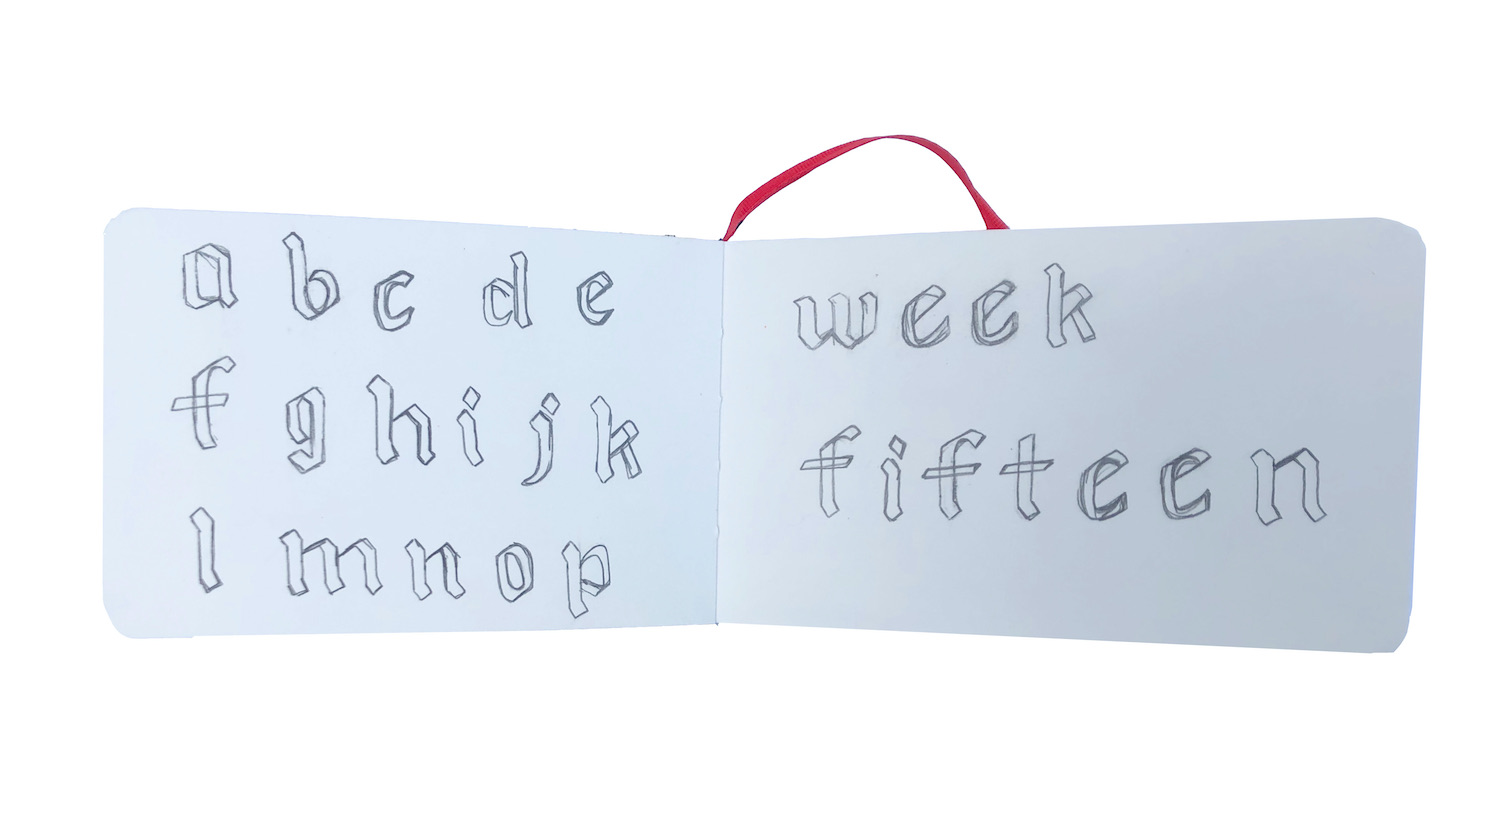 a b c d e
f g h i j k
l m n o p
week
fifteen